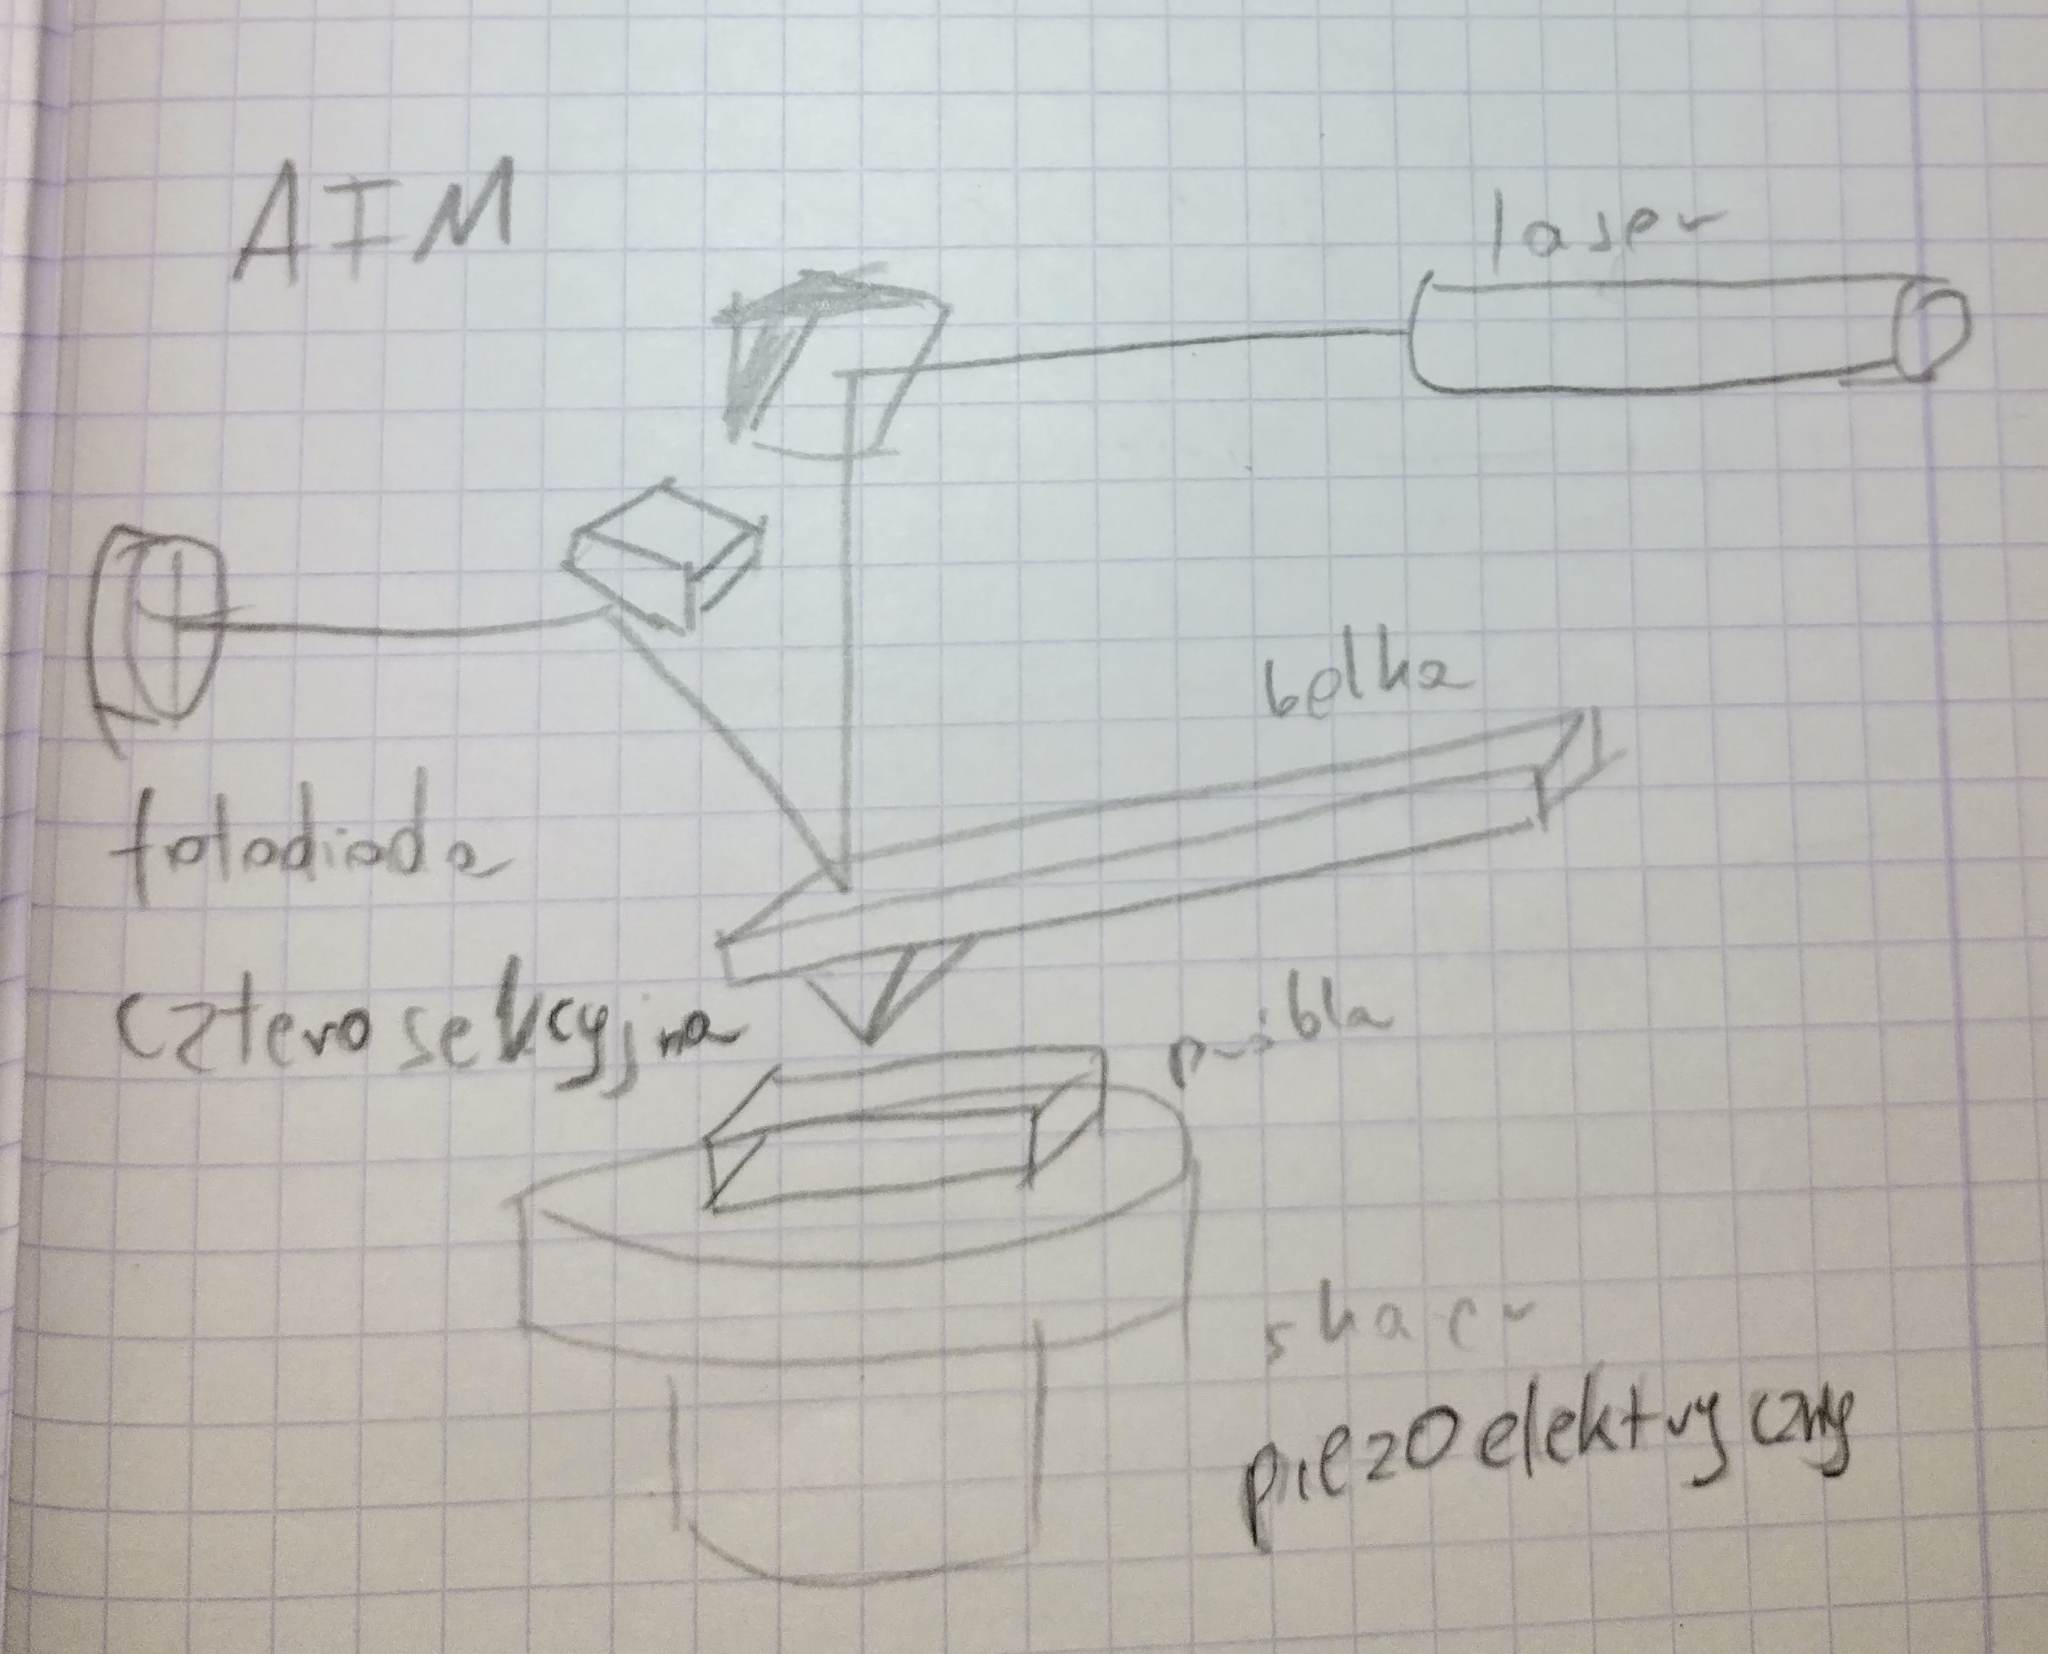 AFM
laser
belka
fotodioda
czterosekcyjna
próbka
skaner
piezoelektryczny